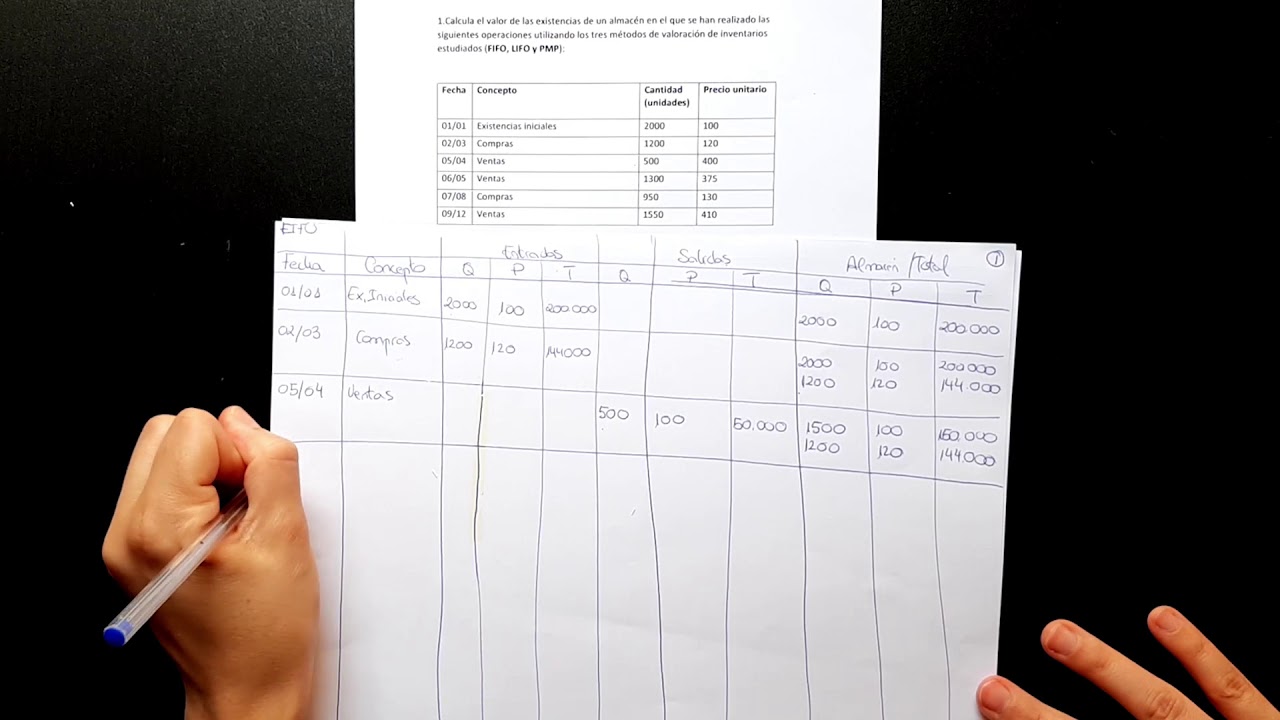 1.Calcula el valor de las existencias de un almacén en el que se han realizado las
siguientes operaciones utilizando los tres métodos de valoración de inventarios
estudiados (FIFO, LIFO y PMP):
Fecha Concepto Cantidad (unidades) Precio unitario
01/01 Existencias iniciales 2000 100
02/03 Compras 1200 120
05/04 Ventas 500 400
06/05 Ventas 1300 375
07/08 Compras 950 130
09/12 Ventas 1550 410
FIFO
Entradas Salidas Almacén/Total 1
Fecha Concepto Q P T Q P T Q P T
01/01 Ex. Iniciales 2000 100 200.000 2000 100 200.000
02/03 Compras 1200 120 144000 2000 100 200.000
1200 120 144.000
05/04 Ventas 500 100 50.000 1500 100 150.000
1200 120 144.000